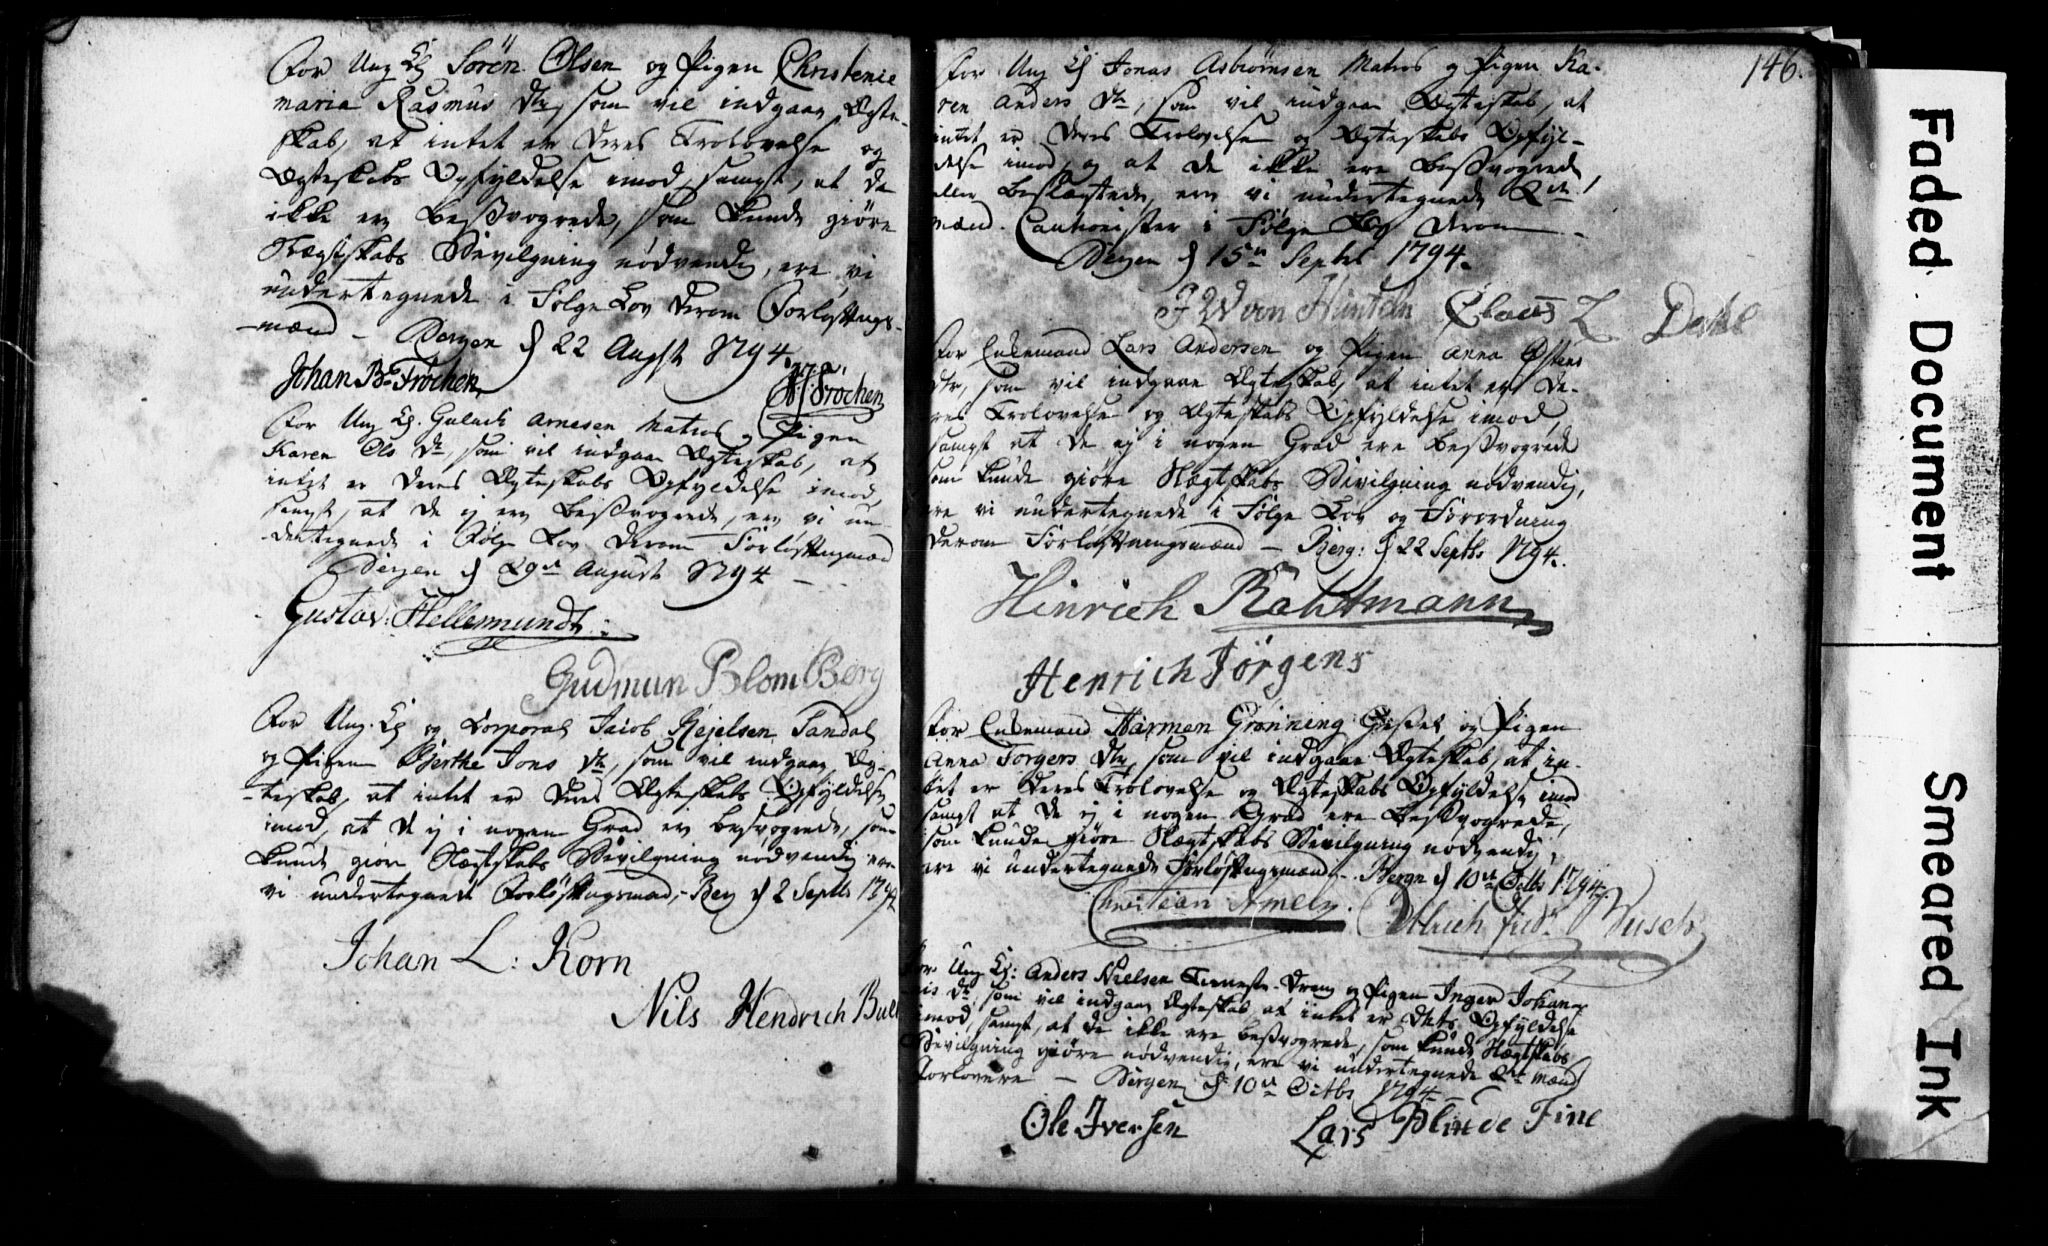 For Ung K: Sören Olsen og Pigen Christenie
maria Rasmus dtr, som vil indgaae Ægte-
skab, at intet er deres Trolovelse og
Ægteskabs Opfyldelse imod, samt, at de
ikke ere besvogrede, som kunde giöre
Kongl. Bevilgning nödvendig, ere vi
undertegnede i Fölge Lov derom Forlöftnings-
-mænd - Bergen d 22 Augst 1794.
Johan Bt Tröchen
Tröchen
For Ung K. Gulach Arnesen Matros og Pigen
Karen Ols dr, som vil indgaae Ægteskab, at
intet er deres Ægteskabs Opfyldelse imod,
samt, at de ej ere besvogrede, ere vi un-
-dertegnede i Fölge Lov derom Forlöftnings-
Bergen d 29de August 1794 -
Gustav: Hellemundt:
Gudmun Blom Berg
For Ung. K og Corporal Jacob Kejelsen Sandal
og Pigen Berthe Jons dtr, som vil indgaae Æg-
-teskab, at intet er deres Ægteskabs Opfyldelse
imod, at de ej i nogen Grad ere besvogrede, som
kunde giöre Kongl. Bevilgning nödvendig ere
vi undertegnede Forlöftningsmænd, - Berg d 2 Septbr 1794
Johan L: Korn
Nils Hendrich Bull
146.
For Ung K Jonas Asbiörnsen Matros og Pigen Ka-
ren Anders dtr, som vil indgaae Ægteskab, at
intet er deres Trolovelse og Ægteskabs Opfyl-
delse imod, og at de ikke ere besvogrede,
eller beslægtede, ere vi undertegnede 2de
mænd Cautionister i Fölge Lov derom -
Bergen d 15de Septbr 1794.
J W von Hünteln Claus Z Dahl
For Enkemand Lars Andersen og Pigen Anna Östens
dtr, som vil indgaae Ægteskab, at intet er de-
res Trolovelse og Ægteskabs Opfyldelse imod,
samt at de ej i nogen Grad ere besvogrede
som kunde giöre Kongl. Bevilgning nödvendig,
ere vi undertegnede i Fölge Lov og Forordning
derom Forlöftningsmænd - Berg: d 22 Septbr 1794.
Hinrich Rahtmann
Henrich Jørgens
For Enkemand Harmen Grønning og Pigen
Anna Torgers dtr, som vil indgaae Ægteskab, at in-
tet er deres Trolovelse og Ægteskabs Opfyldelse imod
samt at de ej i nogen Grad ere besvogrede,
som kunde giöre Kongl. Bevilgning nödvendig,
ere vi undertegnede Forlöftningsmænd - Bergen d 10de Octbr 1794.
Christian Amely. Busch
For Ung K: Anders Nielsen Tieneste-Dreng og Pigen Inger Johan-
nis dr, som vil indgaae Ægteskab, at intet er dets Opfyldelse
imod, samt, at de ikke ere besvogrede, som kunde Kongl.
Bevilgning giöre nödvendig, ere vi undertegnede 2de mænd
Forlovere - Bergen d: 10de Octbr 1794 -
Ole Iversen Lars Fine
Faded Document
Smeared Ink